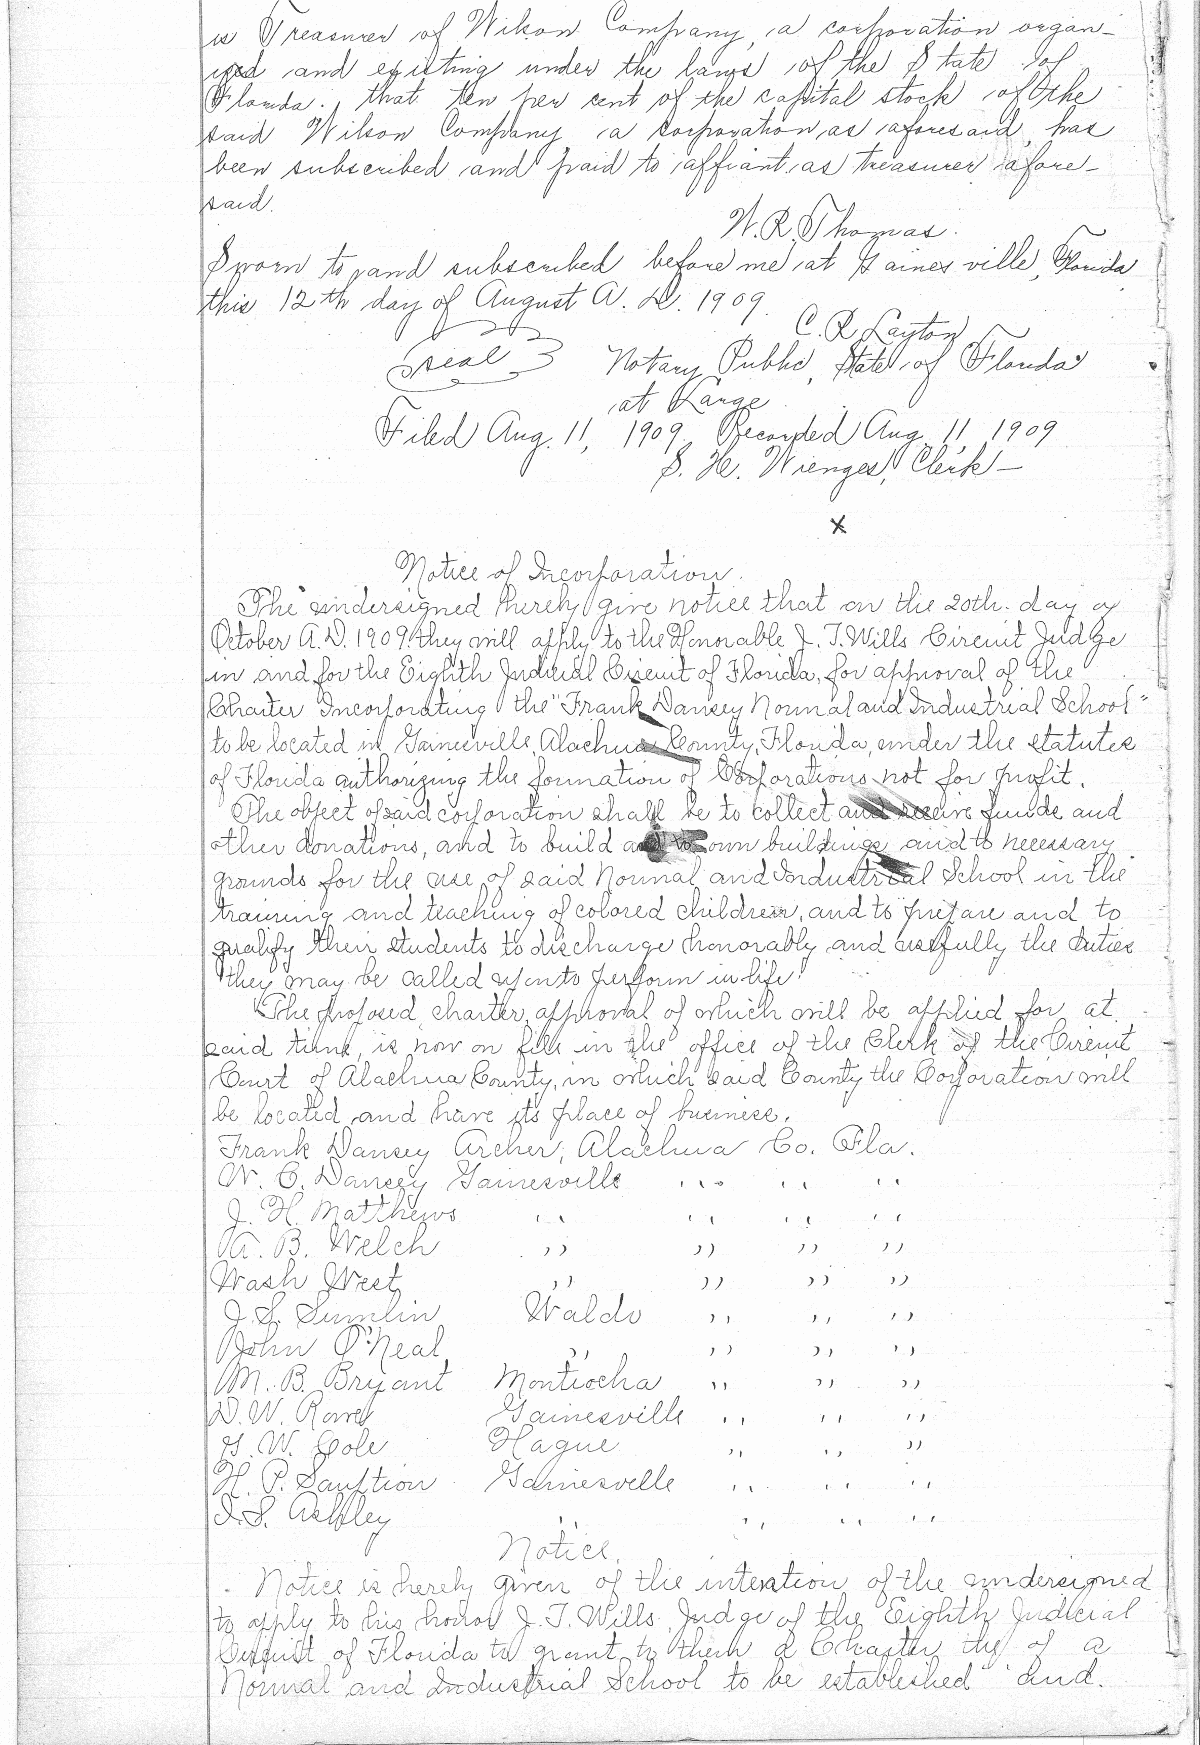 is Treasurer of Wilson Company, a corporation organ-
ized and existing under the laws of the State of
Florida. that ten per cent of the capital stock of the
said Wilson Company a corporation, as aforesaid, has
been subscribed and paid to affiant as treasurer afore-
said.
W. R. Thomas.
Sworn to and subscribed before me at Gainesville, Florida
this 12th day of August A. D. 1909.
C. R. Layton
Seal Notary Public, State of Florida
at Large
Filed Aug. 11, 1909. Recorded Aug. 11, 1909
S. H. Wienges, Clerk-
x
Notice of Incorporation.
The undersigned hereby give notice that on the 20th. day of
October A.D. 1909. they will apply to the Honorable J. T. Wills Circuit Judge
in and for the Eighth Judicial Circuit of Florida, for approval of the
Charter Incorporating the "Frank Dansey Normal and Industrial School"
to be located in Gainesville, Alachua County, Florida, under the statutes
of Florida authorizing the formation of Corporations not for profit.
The object of said corporation shall be to collect and receive funds and
other donations, and to build and to own buildings and to necessary
grounds for the use of said Normal and Industrial School in the
training and teaching of colored children, and to prepare and to
qualify their students to discharge honorably and usefully the duties
they may be called upon to perform in life.
The proposed charter, approval of which will be applied for at
said time, is now on file in the office of the Clerk of the Circuit
Court of Alachua County, in which said County the Corporation will
be located and have its place of business.
Frank Dansey Archer, Alachua Co. Fla.
W. C. Dansey Gainesville " " "
J. H. Matthews " " " "
A. B. Welch " " " "
Wash West " " " "
J. S. Sumlin Waldo " " "
John O'Neal " " " "
M. B. Bryant Montiocha " " "
D. W. Rowe Gainesville " " "
G. W. Cole Hague " " "
H. P. Gainesville " " "
I. S. Ashley " " " "
Notice.
Notice is hereby given of the intention of the undersigned
to apply to his honor J. T. Wills, Judge of the Eighth Judicial
Circuit of Florida to grant to them a Charter the of a
Normal and Industrial School to be established and.